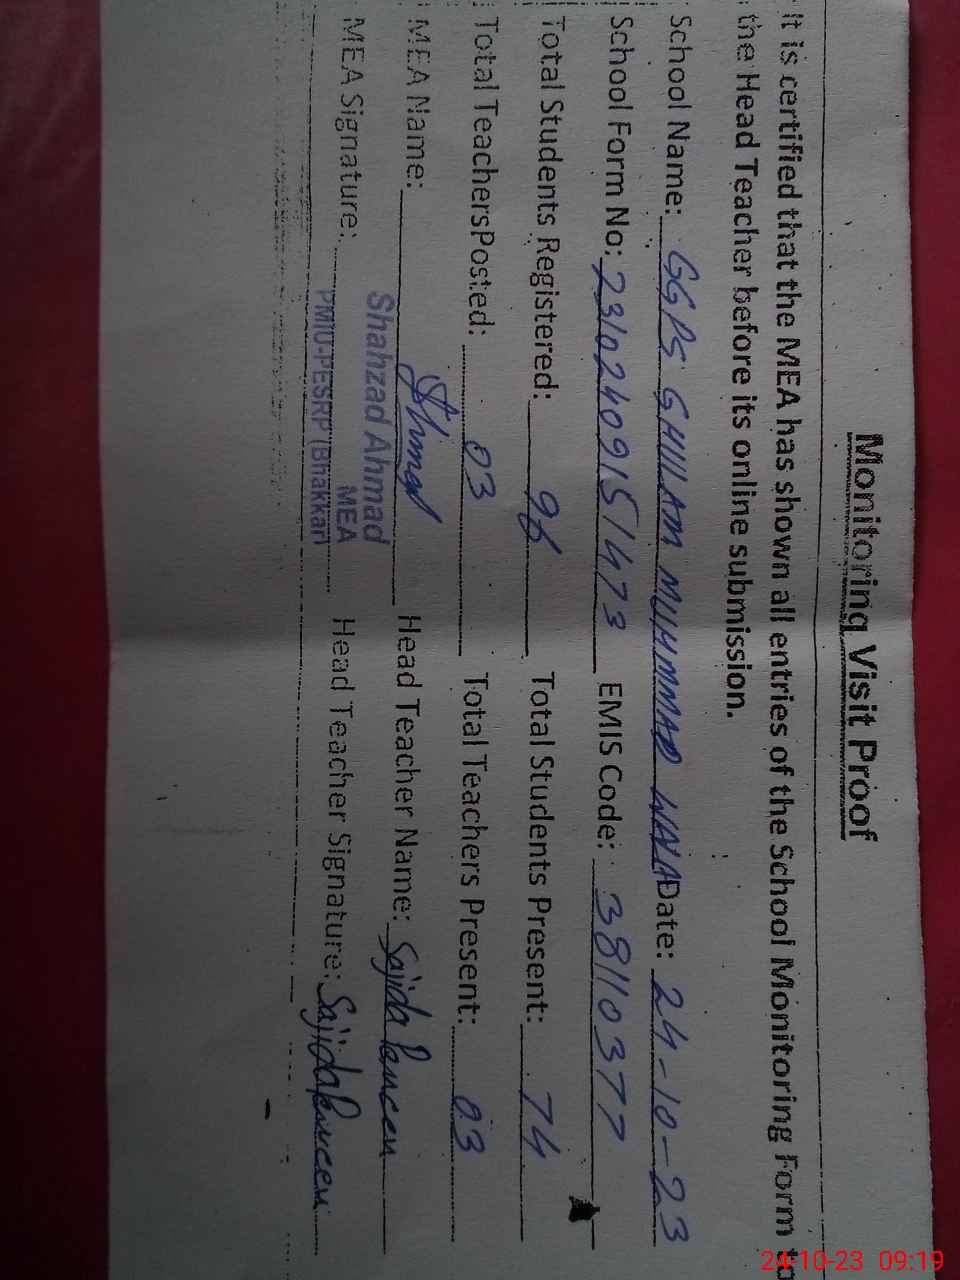 Monitoring Visit Proof
It is certified that the MEA has shown all entries of the School Monitoring Form to
the Head Teacher before its online submission.
School Name: GGPS GHULAM MUHMMAD WALA Date: 24-10-23
School Form No: 23102409151473 EMIS Code: 38110377
Total Students Registered: 96 Total Students Present: 74
Total TeachersPosted: 03 Total Teachers Present: 03
MEA Name: Head Teacher Name: Sajida Parveen
Shahzad Ahmad
MEA Signature: MEA Head Teacher Signature: Sajida Parveen
PMIU-PESRP (Bhakkar)
24-10-23 09:19